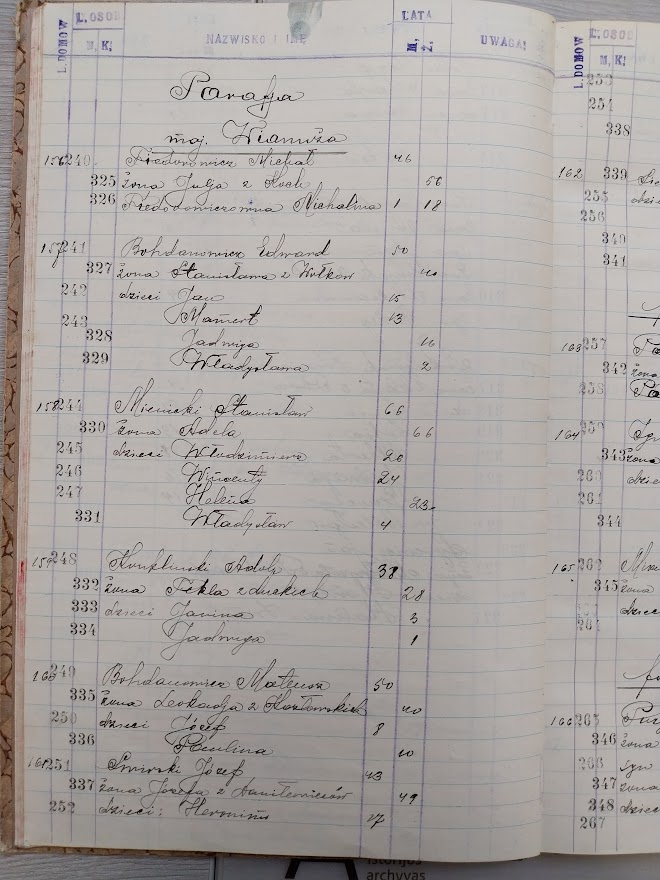 L. DOMÓW L. OSOB M. K. NAZWISKO I IMĘ LATA M. Ż. UWAGA
Parafja
maj. Wiamuża
156 240 Fiedorowicz Michał 46
325 żona Julja z Koch 56
326 Fiedorowiczowna Michalina 1 18
157 241 Bohdanowicz Edward 50
327 żona Stanisława z Wołków 40
242 dzieci Jan 15
243 Mamert 13
328 Jadwiga
329 Władysława 2
158 244 Mienicki Stanisław 66
330 żona Adela 66
245 dzieci Włodzimierz 20
246 Wincenty 24
247 Helena 23
331 Władysław 4
159 248 Adolf 38
332 żona Tekla 28
333 dzieci Janina 3
334 Jadwiga 1
160 249 Bohdanowicz Mateusz 50
335 żona Leokadja z Kozłowskich 40
250 dzieci Józef 8
336 Paulina 10
161 251 Świrski Józef 43
337 żona Józefa z Daniłowiczów 49
252 dzieci: Hieronim 17
L. DOMÓW L. OSOB
M. K.
253
254
338
162 339
255
256
340
341
163 257
342 żona
258
164 259
343 żona
260
261
344
165 262
345 żona
dzieci
264
166 265
346 żona
266 syn
347 żona
348 dzieci
267
istorijos
archyvas